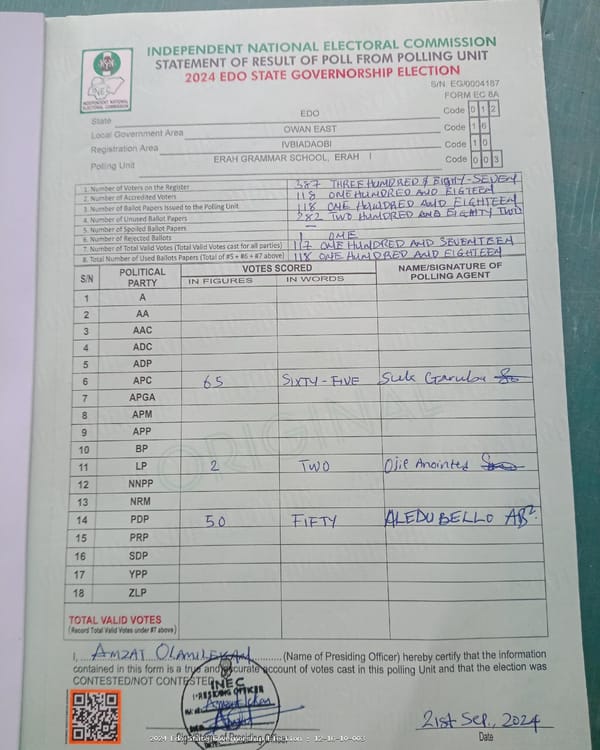 INDEPENDENT NATIONAL ELECTORAL COMMISSION
STATEMENT OF RESULT OF POLL FROM POLLING UNIT
2024 EDO STATE GOVERNORSHIP ELECTION
S/N EG/0004187
FORM EC 8A
INEC
INDEPENDENT NATIONAL
ELECTORAL COMMISSION
State EDO Code 0 1 2
Local Government Area OWAN EAST Code 1 6
Registration Area IVBIADAOBI Code 1 0
Polling Unit ERAH GRAMMAR SCHOOL, ERAH I Code 0 0 3
1. Number of Voters on the Register 387 THREE HUNDRED & EIGHTY-SEVEN
2. Number of Accredited Voters 118 ONE HUNDRED AND EIGTEEN
3. Number of Ballot Papers Issued to the Polling Unit 118 ONE HUNDRED AND EIGHTEEN
4. Number of Unused Ballot Papers 282 TWO HUNDRED AND EIGHTY TWO
5. Number of Spoiled Ballot Papers —
6. Number of Rejected Ballots 1 ONE
7. Number of Total Valid Votes (Total Valid Votes cast for all parties) 117 ONE HUNDRED AND SEVENTEEN
8. Total Number of Used Ballots Papers (Total of #5 + #6 + #7 above) 118 ONE HUNDRED AND EIGHTEEN
S/N POLITICAL PARTY VOTES SCORED NAME/SIGNATURE OF POLLING AGENT
IN FIGURES IN WORDS
1 A
2 AA
3 AAC
4 ADC
5 ADP
6 APC 65 SIXTY-FIVE Sule Garuba
7 APGA
8 APM
9 APP
10 BP
11 LP 2 TWO Ojie Anointed
12 NNPP
13 NRM
14 PDP 50 FIFTY ALEDU BELLO
15 PRP
16 SDP
17 YPP
18 ZLP
ORIGINAL
TOTAL VALID VOTES
(Record Total Valid Votes under #7 above)
I, AMZAT OLAMILEKAN (Name of Presiding Officer) hereby certify that the information
contained in this form is a true and accurate account of votes cast in this polling Unit and that the election was
CONTESTED/NOT CONTESTED
INEC
PRESIDING OFFICER
21st Sep, 2024
Date
2024 Edo State Governorship Election - 12-16-10-003